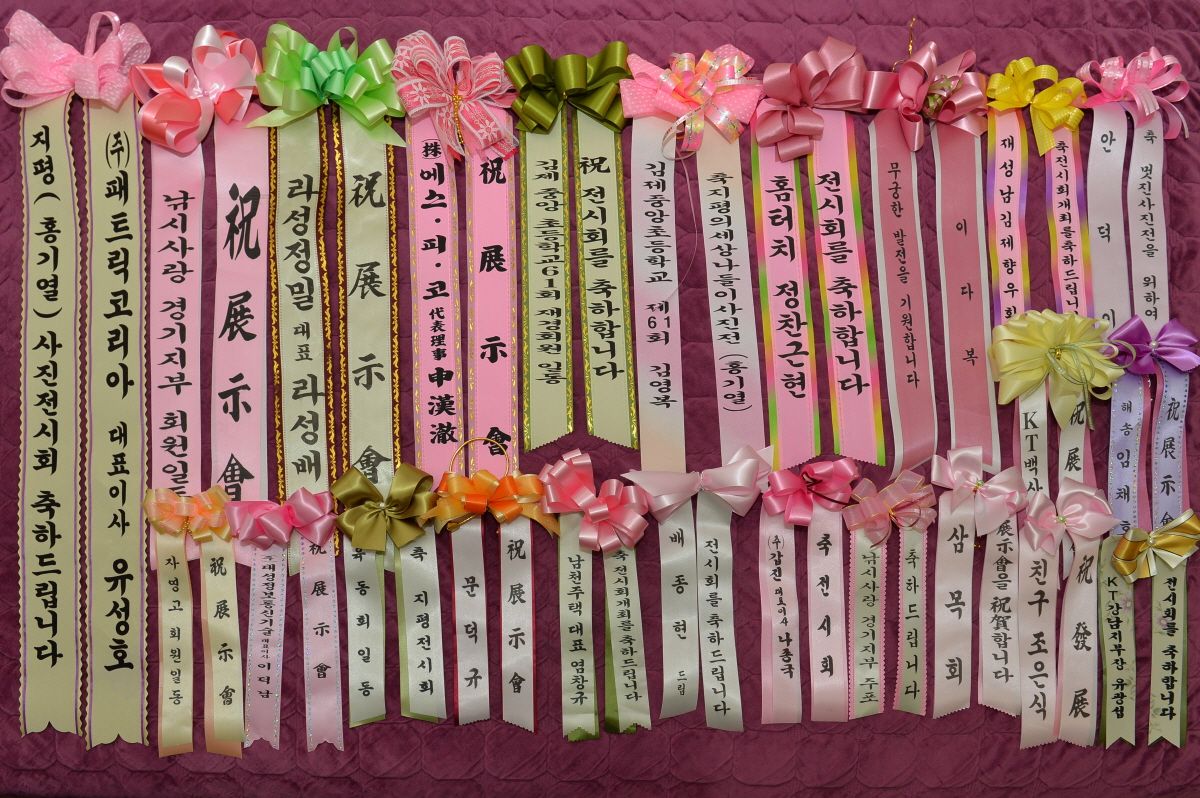 지평(홍기열) 사진전시회 축하드립니다
(주)패트릭코리아 대표이사 유성호
낚시사랑 경기지부 회원일동
祝展示會
라성정밀 대표 라성배
祝展示會
(株)에스.피.코 代表理事 申漢澈
祝展示會
김제 중앙 초등학교61회 재경회원 일동
祝 전시회를 축하합니다
김제중앙초등학교 제61회 김영복
축지평의세상나들이사진전(홍기열)
홈터치 정찬근현
전시회를 축하합니다
무궁한 발전을 기원합니다
이다복
재성남김제향우회
축전시회개최를축하드립니
안덕이
축 멋진사진을 위하여
KT백사
祝展
해송임채
祝展示會
자영고회원일동
祝展示會
대성정보통신기술 대표이사 이덕남
祝展示會
유동회일동
축 지평전시회
문덕규
祝展示會
남천주택 대표 염창규
축전시회개최를축하드립니다
배종현 드림
전시회를 축하드립니다
(주)갑진 대표이사 나종국
축전시회
낚시사랑 경기지부 주포
축하드립니다
삼목회
展示會을 祝賀합니다
친구 조은식
祝發展
KT강남지부장 유광섭
전시회를 축하합니다